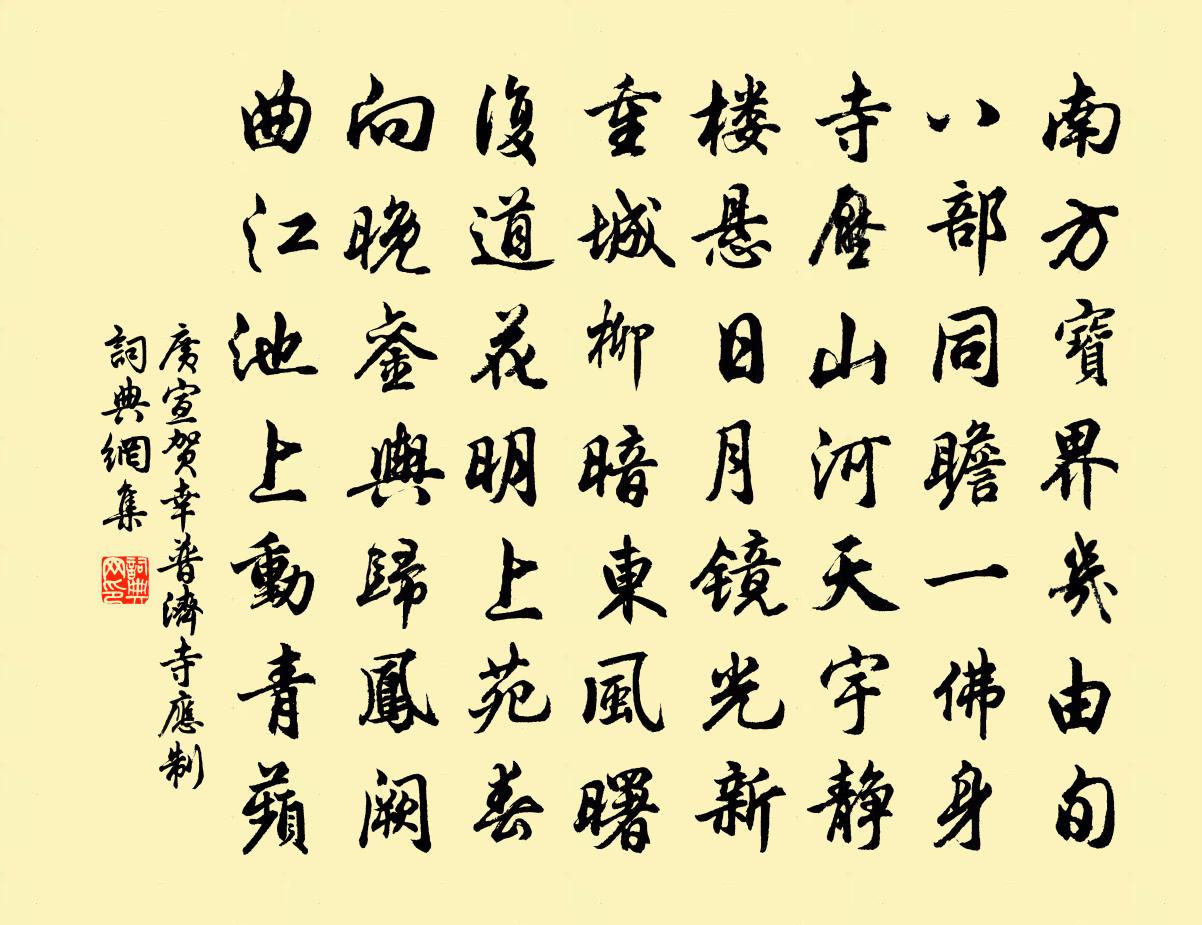 南方寶界幾由旬
八部同瞻一佛身
寺壓山河天宇静
楼悬日月镜光新
重城柳暗東風曙
復道花明上苑春
向晚銮輿歸鳳阙
曲江池上動青蘋
廣宣贺幸普濟寺應制
詞典網集
詞典网印